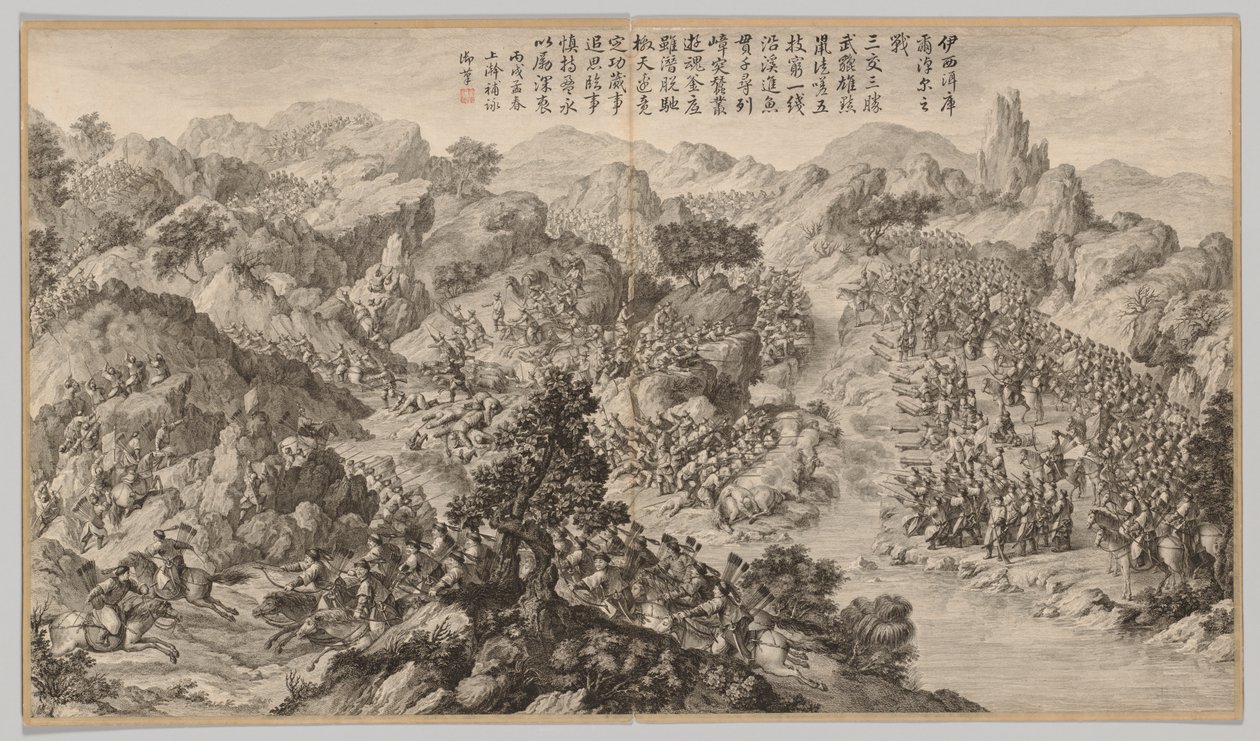 伊西洱庫
爾淖尔之
戰
三交三勝
武雄黠
鼠徒嗟五
技窮一綫
沿溪進魚
貫千尋列
嶂突蠶叢
遊魂釜底
雖潛脫馳
檄天邊竟
定功蕆事
追思臨事
慎持盈永
以勵深衷
丙戌孟春
上澣補詠
御筆